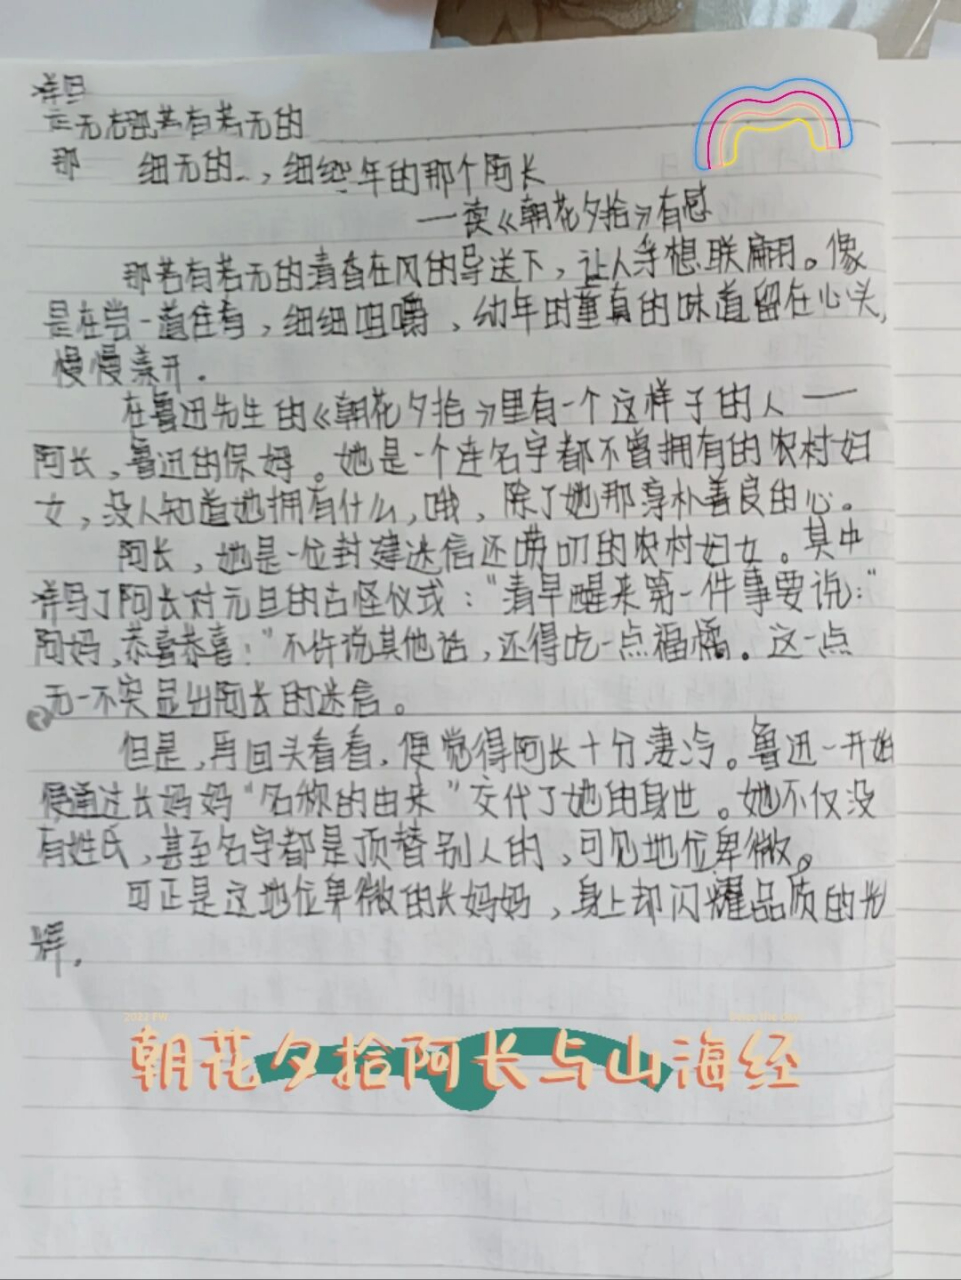 详写
无
若有若无的
那 细无的..,细
年的那个阿长
——读《朝花夕拾》有感
那若有若无的清香在风的导送下,让人浮想联翩。像
是在尝一道佳肴,细细咀嚼,幼年时童真的味道留在心头,
慢慢荡开.
在鲁迅先生的《朝花夕拾》里有一个这样子的人——
阿长,鲁迅的保姆。她是一个连名字都不曾拥有的农村妇
女,没人知道她拥有什么,哦,除了她那淳朴善良的心。
阿长,她是一位封建迷信还唠叨的农村妇女。其中
详写了阿长对元旦的古怪仪式:“清早醒来第一件事要说:“
阿妈,恭喜恭喜!”不许说其他话,还得吃一点福橘。这一点
无一不突显出阿长的迷信。
但是,再回头看看,便觉得阿长十分凄冷。鲁迅一开始
便通过长妈妈“名称的由来”交代了她的身世。她不仅没
有姓氏,甚至名字都是顶替别人的,可见地位卑微。
可正是这地位卑微的长妈妈,身上却闪耀品质的光
辉.
朝花夕拾阿长与山海经